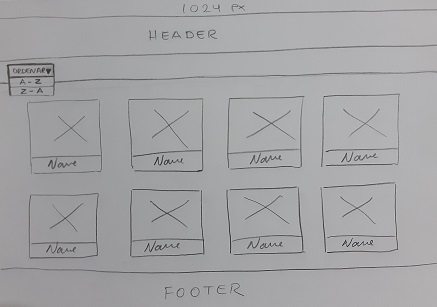 1024 PX
HEADER
ORDENAR▼
A - Z
Z - A
Name Name Name Name
Name Name Name Name
FOOTER